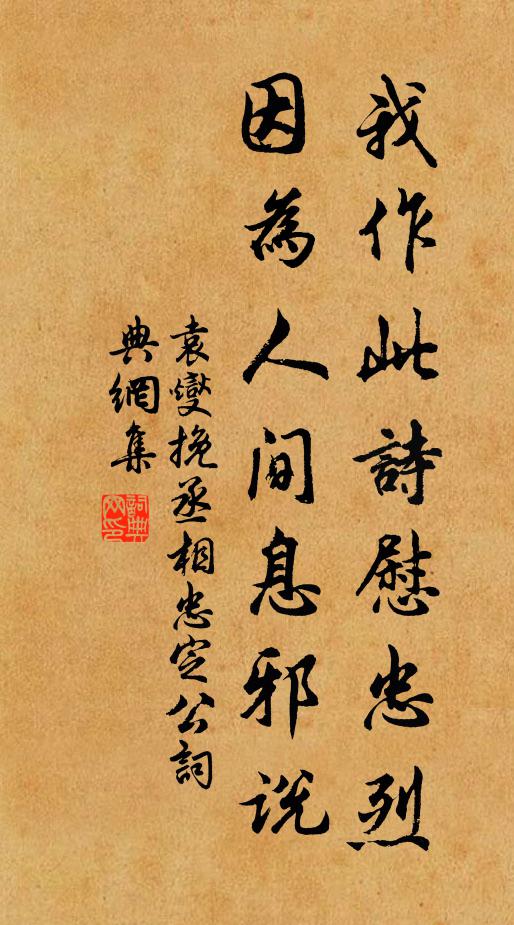 我作此詩慰忠烈
因為人間息邪説
袁燮挽丞相忠定公詞
典網集
詞典網印